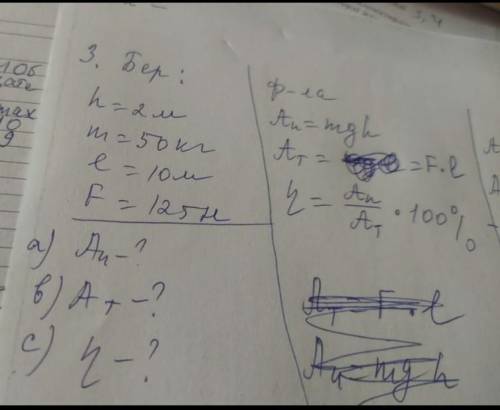 3. Бер:
h = 2 м
m = 50 кг
l = 10 м
F = 125 н
а) Aп – ?
в) A т – ?
с) η – ?
ф-ла
Aп = mgh
Aт = = F·l
η = Aп/Aт · 100%
Aт = F·l
Aп = mgh